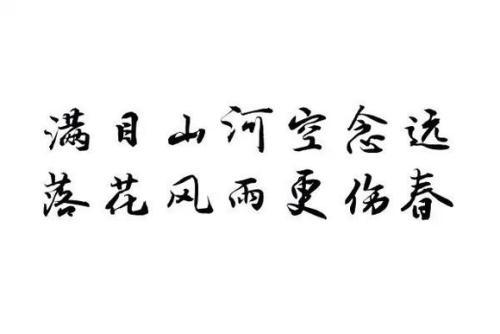 满目山河空念远
落花风雨更伤春